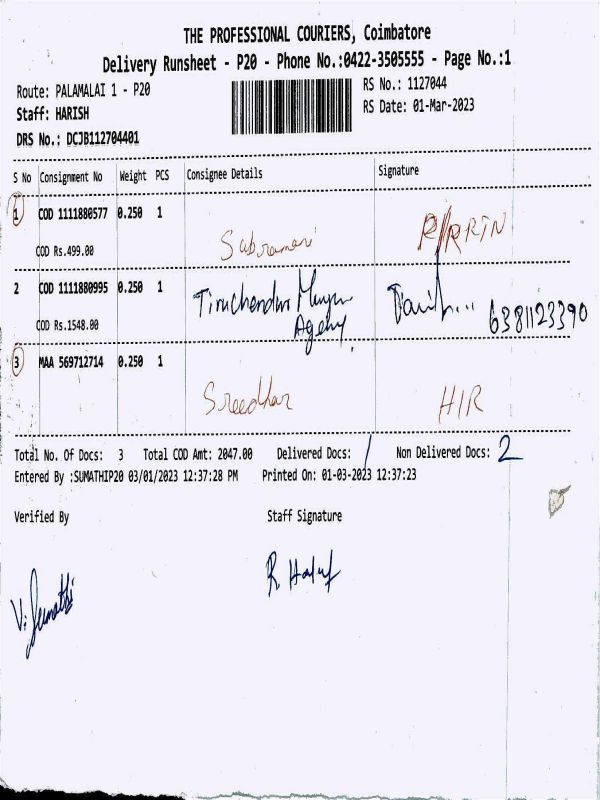 THE PROFESSIONAL COURIERS, Coimbatore
Delivery Runsheet - P20 - Phone No.:0422-3505555 - Page No.:1
Route: PALAMALAI 1 - P20
RS No.: 1127044
Staff: HARISH
RS Date: 01-Mar-2023
DRS No.: DCJB112704401
S No Consignment No Weight PCS Consignee Details Signature
1 COD 1111880577 0.250 1
COD Rs.499.00 Subramani
2 COD 1111880995 0.250 1 Tiruchendur Murugan
COD Rs.1548.00 Agency 6381123390
3 MAA 569712714 0.250 1
Sreedhar
Total No. Of Docs: 3 Total COD Amt: 2047.00 Delivered Docs: 1 Non Delivered Docs: 2
Entered By :SUMATHIP20 03/01/2023 12:37:28 PM Printed On: 01-03-2023 12:37:23
Verified By Staff Signature
V. Sumathi